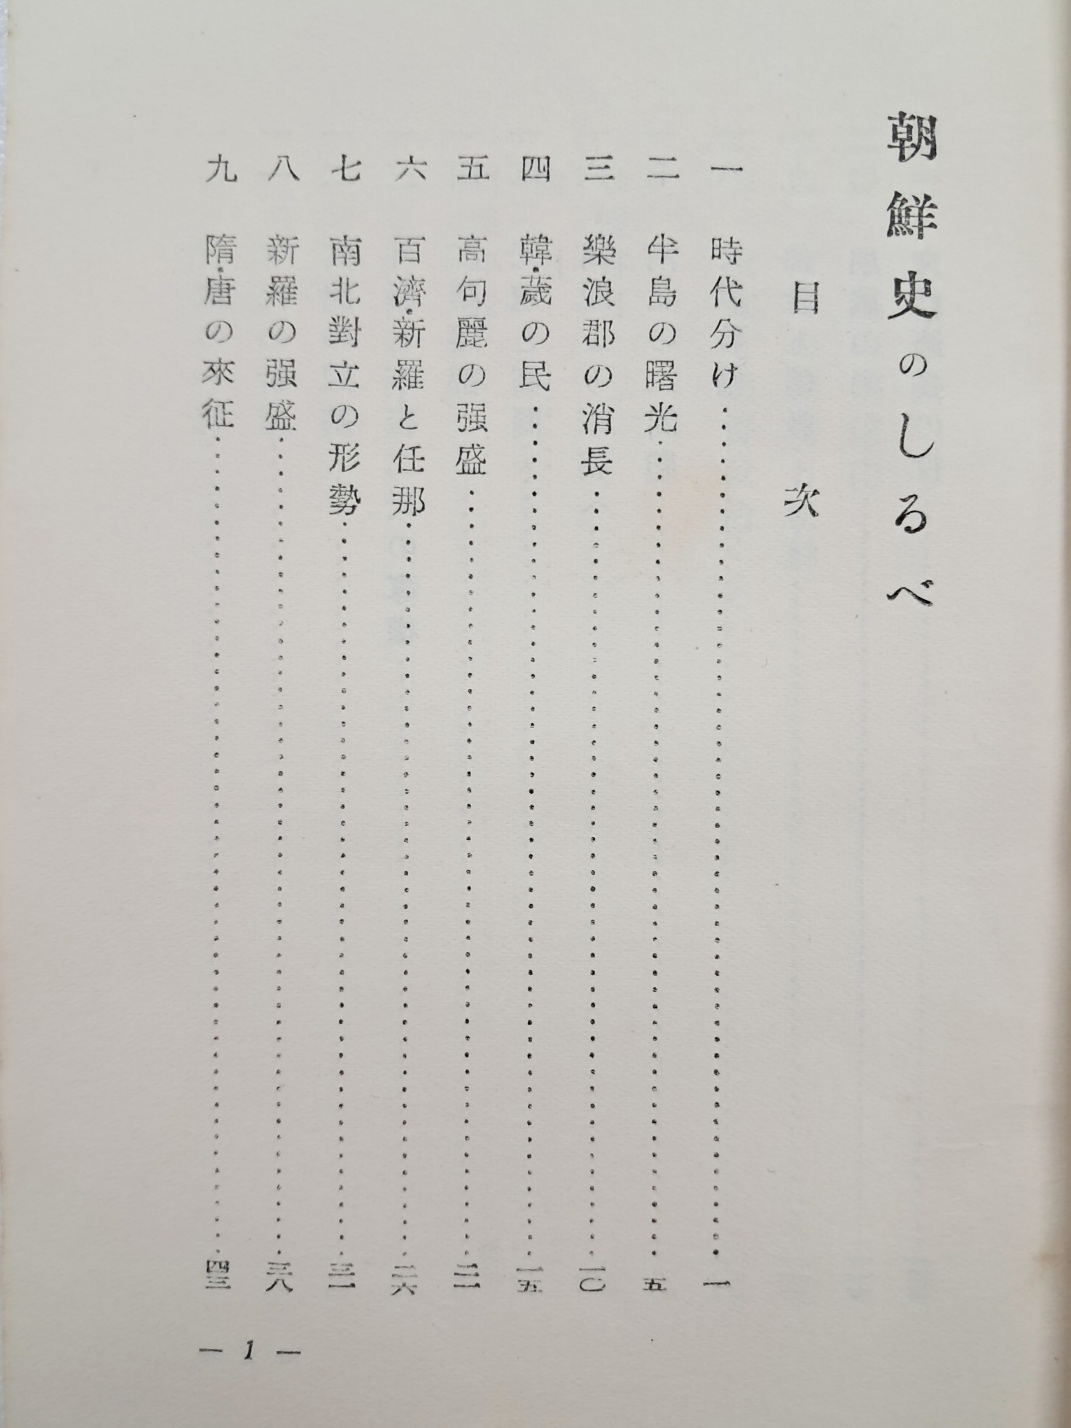 朝鮮史のしるべ
目次
一 時代分け……一
二 半島の曙光……五
三 樂浪郡の消長……一〇
四 韓・濊の民……一五
五 高句麗の强盛……二一
六 百濟・新羅と任那……二六
七 南北對立の形勢……三一
八 新羅の强盛……三八
九 隋・唐の來征……四三
— 1 —